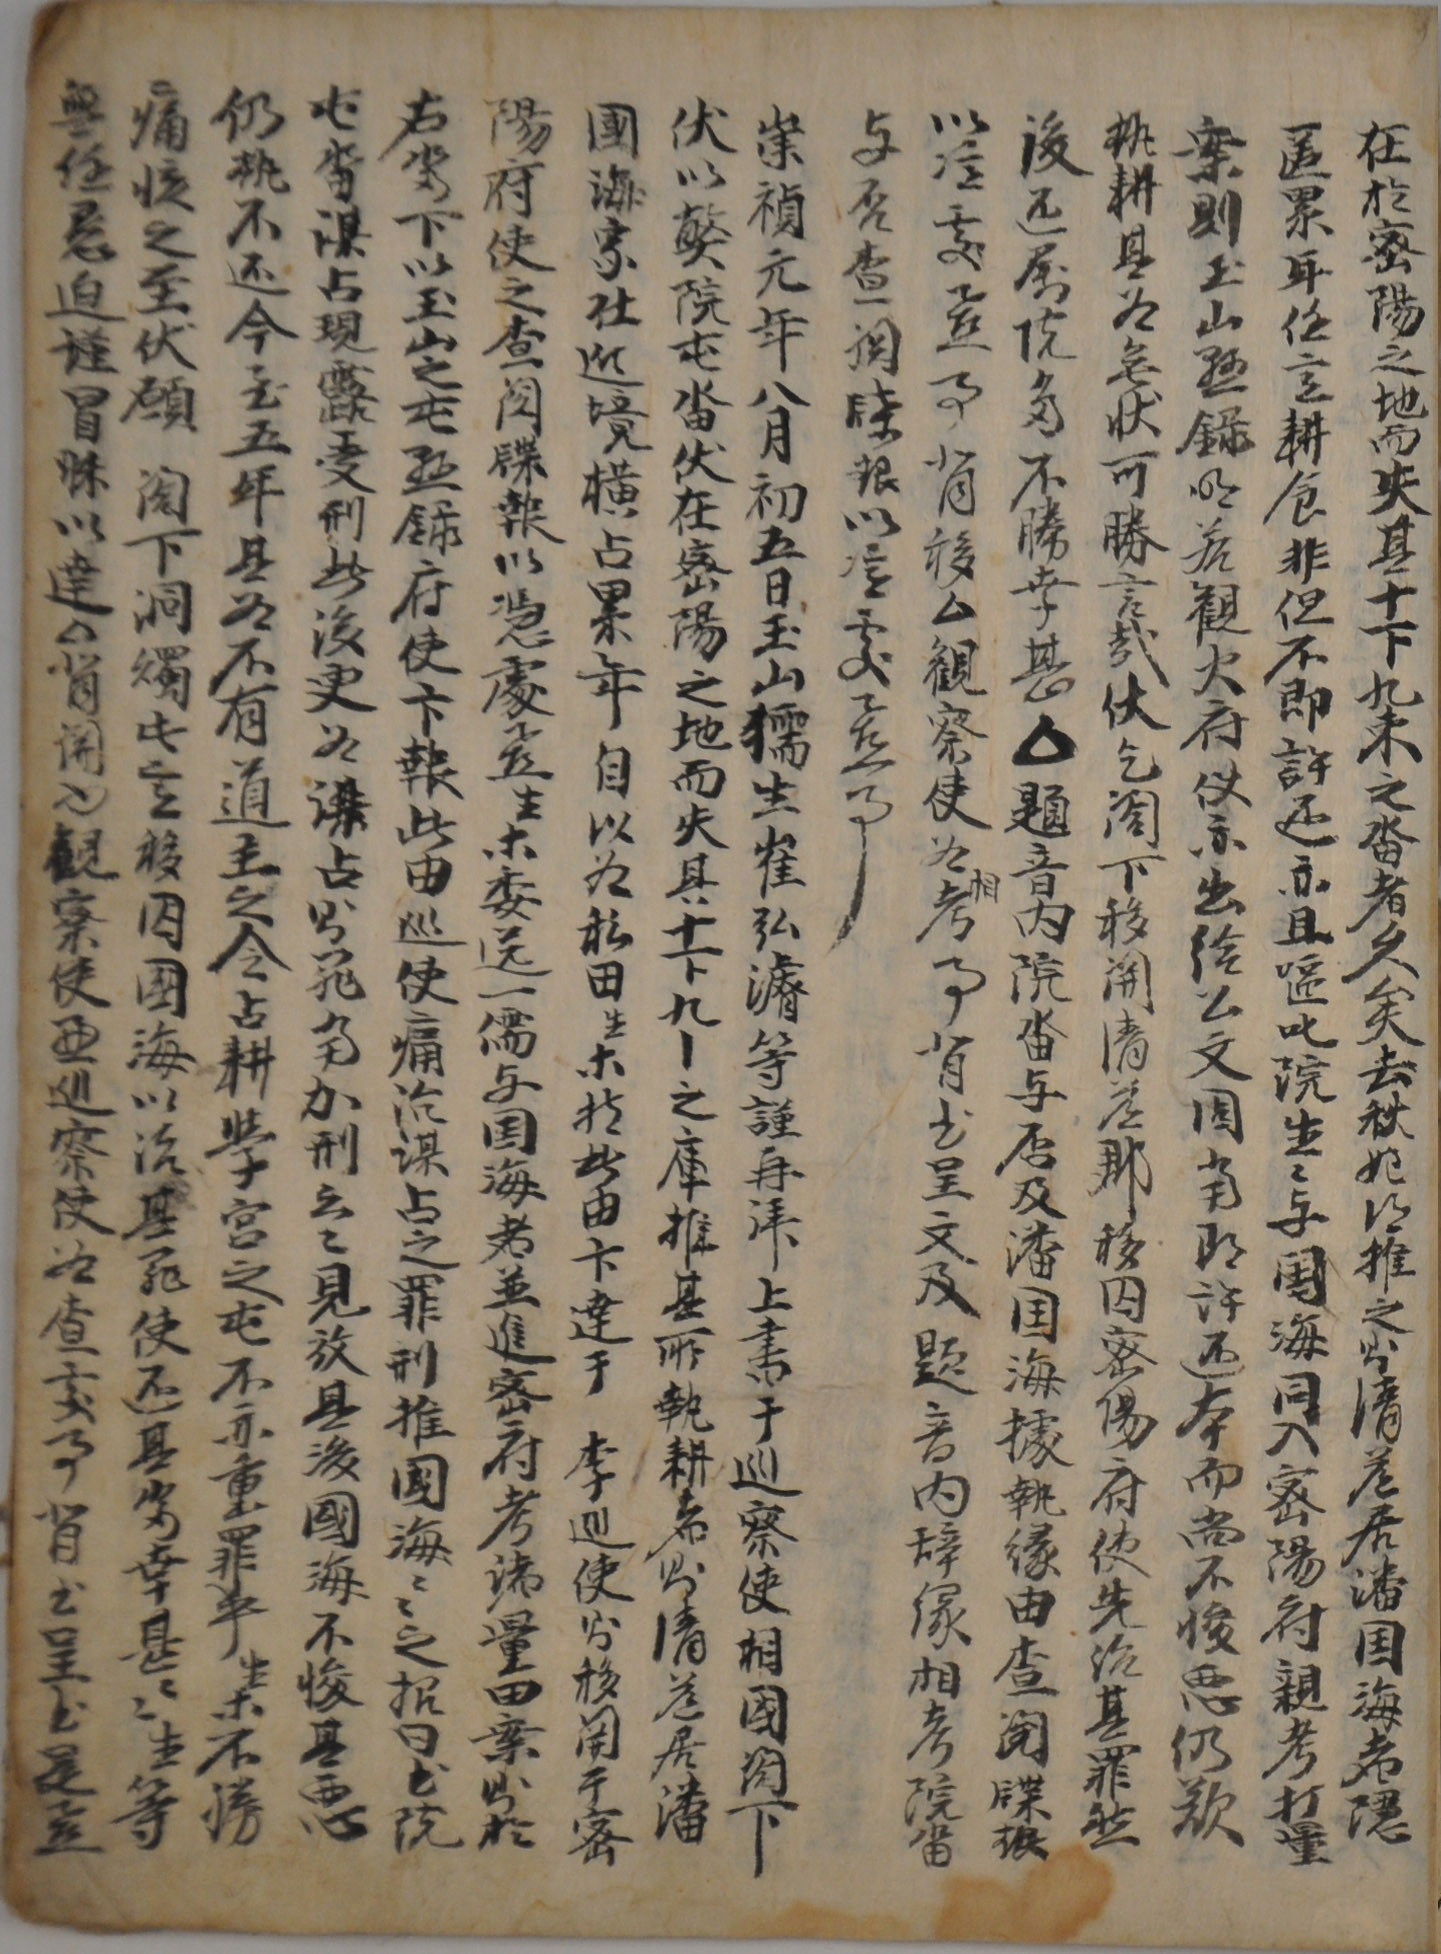 在於密陽之地而失其十下九束之畓者久矣去秋始得推之則清道居潘国海者隱
匿累年任意耕食非但不即許還亦且嘔叱院生〻与国海同入密陽府親考打量
案則玉山懸錄明若觀火府使亦出給公文固当即許还本而尚不悛悪仍欲
執耕其為無狀可勝言哉伏乞閤下移關清道郡移囚密陽府使先治其罪然
後还屬院多不勝幸甚△題音內院畓与否及潘国海據執緣由查閱牒報
以憑處置事背移△觀察使為相考事背書呈文及題音內辞緣相考院畓
与否查閱牒報以憑處置事
崇禎元年八月初五日玉山儒生崔弘濬等謹再拜上書于巡察使相國閤下
伏以弊院屯畓伏在密陽之地而失其十下九卜之庫推其所執耕者則清道居潘
國海家在近境橫占累年自以為私田生等於此由卞達于 李巡使則移関于密
陽府使之查閱牒報以憑處置生等委送一儒与国海者並進密府考諸量田案則於
右畓下以玉山之屯懸錄府使卞報此由巡使痛治謀占之罪刑推國海〻之招曰書院
屯畓謀占現露受刑此後更為謀占則死当加刑云〻見放其後國海不悛其悪
仍執不还今至五年其為不有道主之令占耕學宮之屯不亦重罪乎生等不勝
痛惋之至伏願 閤下洞燭此意移囚國海以治其罪使还其畓幸甚〻生等
無任懇迫謹冒昧以達△背関内觀察使兼巡察使為查處事背書呈書是置